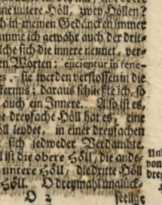 innere Höll, zwey Höllen?
ch in meinen Gedancken immer
ich gewahr auch der drit-
che sich die innere nennet, ver-
en Worten: ejicientur in tene-
s, sie werden verstossen in die
sternus; daraus schliesse ich, so
auch ein Innere. Also ist es,
dreyfache Höll hat es, eine
ll leydet, in einer dreyfachen
sich jedweder Verdambte.
l ist die obere Höll, die ande-
untere Höll, die dritte Höll
Höll. O dreymahl unglück-
O 2 seelige